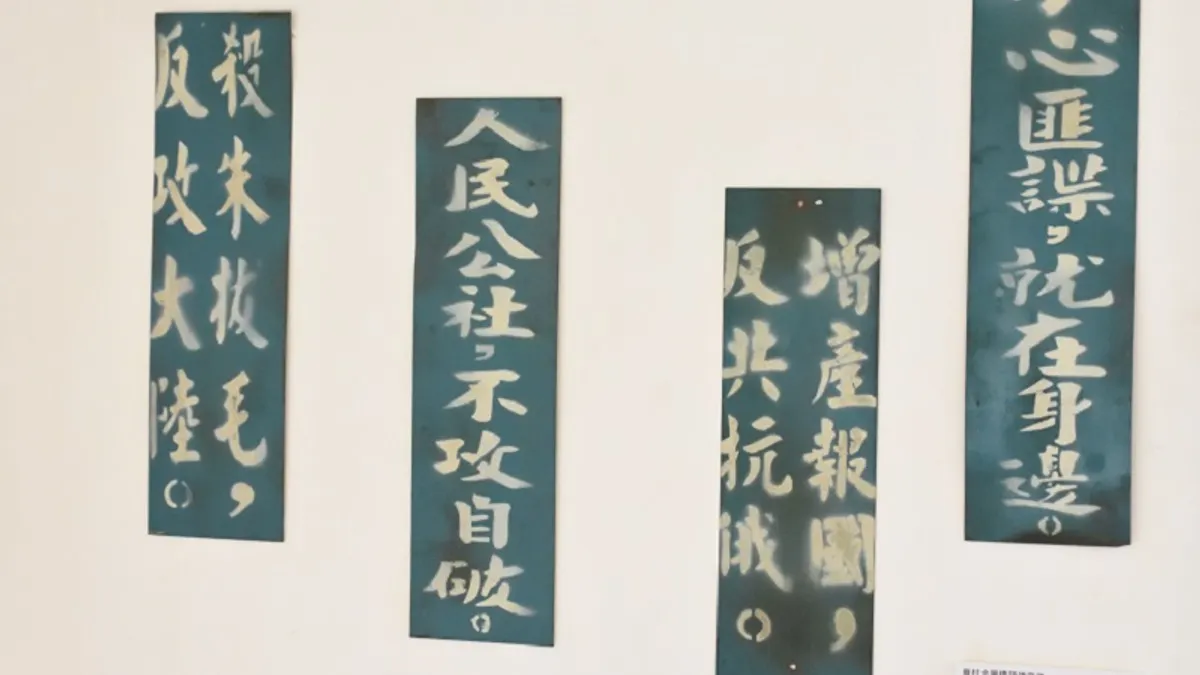 殺朱拔毛，
反攻大陸。
人民公社，不攻自破。
增產報國，
反共抗俄。
心匪諜，就在身邊。